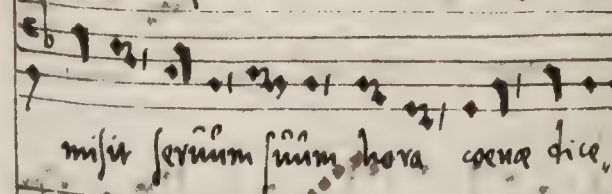 misit servûm sûûm hora coenæ dice,,